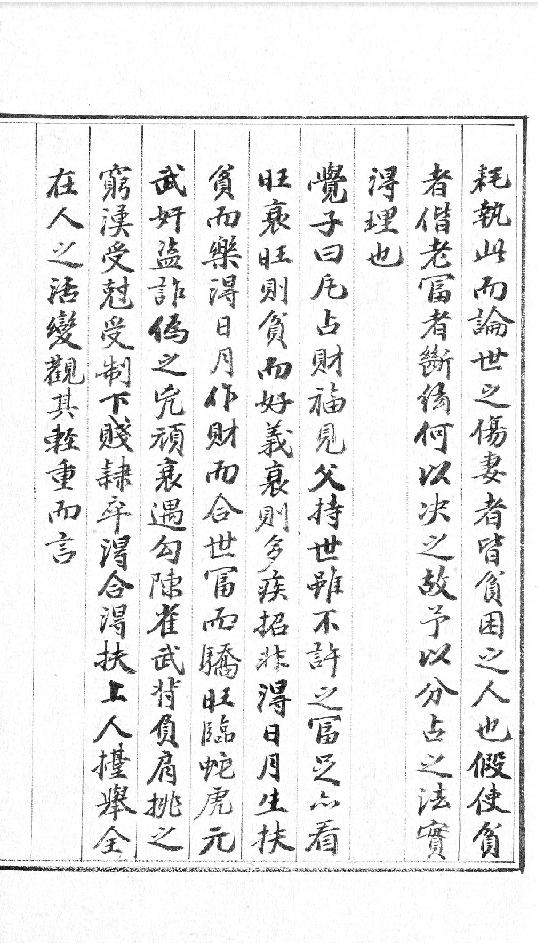 耗執此而論世之傷妻者皆貧困之人也假使貧
者偕老冨者斷絃何以决之故予以分占之法實
淂理也
覺子曰凢占財福見父持世雖不許之冨足亦看
旺衰旺則貧而好義衰則多疾招非淂日月生扶
貧而樂淂日月作財而合世冨而驕旺臨蛇虎元
武奸盗詐偽之兇頑衰遇勾陳雀武背負肩挑之
窮漢受尅受制下賤隷卒淂合淂扶上人擡舉全
在人之活變觀其輕重而言